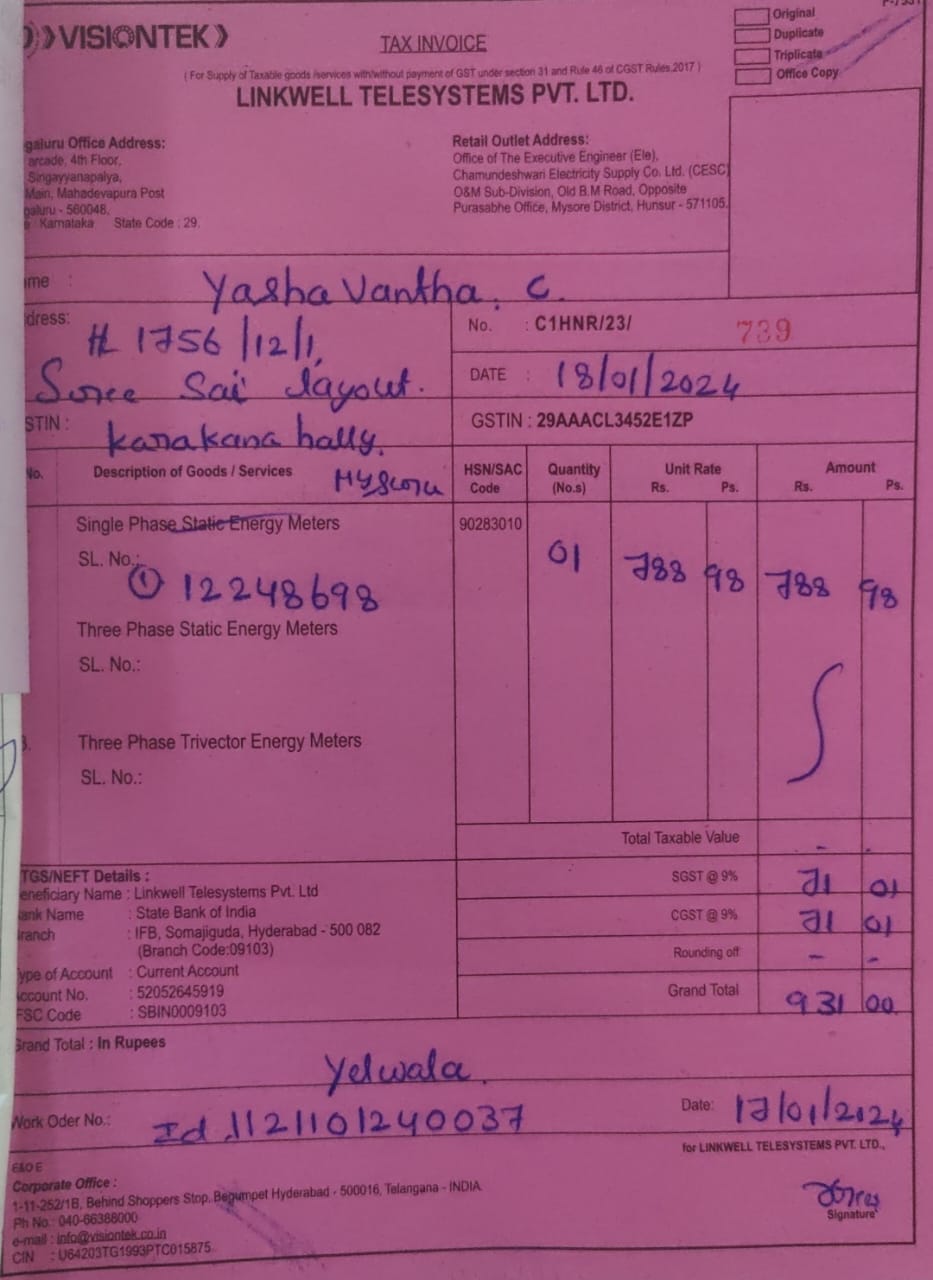 VISIONTEK
TAX INVOICE
Original
Duplicate
Triplicate
Office Copy
( For Supply of Taxable goods /services with/without payment of GST under section 31 and Rule 46 of CGST Rules,2017 )
LINKWELL TELESYSTEMS PVT. LTD.
galuru Office Address:
arcade, 4th Floor,
Singayyanapalya,
Main, Mahadevapura Post
galuru - 560048.
Karnataka State Code : 29.
Retail Outlet Address:
Office of The Executive Engineer (Ele),
Chamundeshwari Electricity Supply Co. Ltd. (CESC)
O&M Sub-Division, Old B.M Road, Opposite
Purasabhe Office, Mysore District, Hunsur - 571105.
ame : Yasha Vantha. C.
dress: # 1756/12/1,
Sree Sai layout.
STIN : karakana hally.
Mysore
No. : C1HNR/23/ 739
DATE : 18/01/2024
GSTIN : 29AAACL3452E1ZP
No. Description of Goods / Services HSN/SAC Code Quantity (No.s) Unit Rate Rs. Ps. Amount Rs. Ps.
Single Phase Static Energy Meters 90283010 01 788 98 788 98
SL. No.:
① 12248698
Three Phase Static Energy Meters
SL. No.:
3. Three Phase Trivector Energy Meters
SL. No.:
Total Taxable Value - -
SGST @ 9% 71 01
CGST @ 9% 71 01
Rounding off - -
Grand Total 931 00
TGS/NEFT Details :
eneficiary Name : Linkwell Telesystems Pvt. Ltd
ank Name : State Bank of India
ranch : IFB, Somajiguda, Hyderabad - 500 082
(Branch Code:09103)
ype of Account : Current Account
ccount No. : 52052645919
FSC Code : SBIN0009103
Grand Total : In Rupees
Yelwala
Work Oder No.: Id 1121101240037
Date: 17/01/2024
for LINKWELL TELESYSTEMS PVT. LTD.,
E&O E
Corporate Office :
1-11-252/1B, Behind Shoppers Stop, Begumpet Hyderabad - 500016, Telangana - INDIA
Ph No.: 040-66388000
e-mail : info@visiontek.co.in
CIN : U64203TG1993PTC015875
Signature